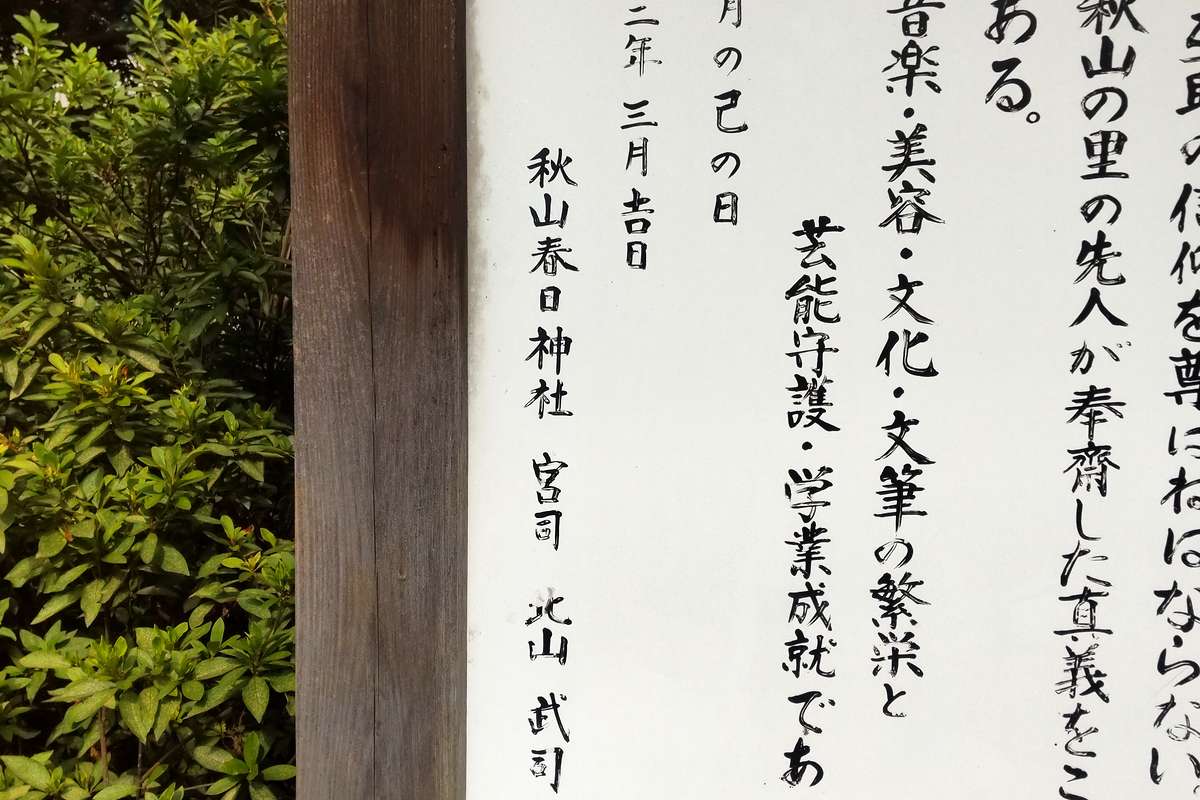 の信仰を尊にねはならない
秋山の里の先人が奉齋した真義をこ
ある。
音楽・美容・文化・文筆の繁栄と
芸能守護・学業成就であ
月の己の日
二年 三月吉日
秋山春日神社 宮司 北山 武司